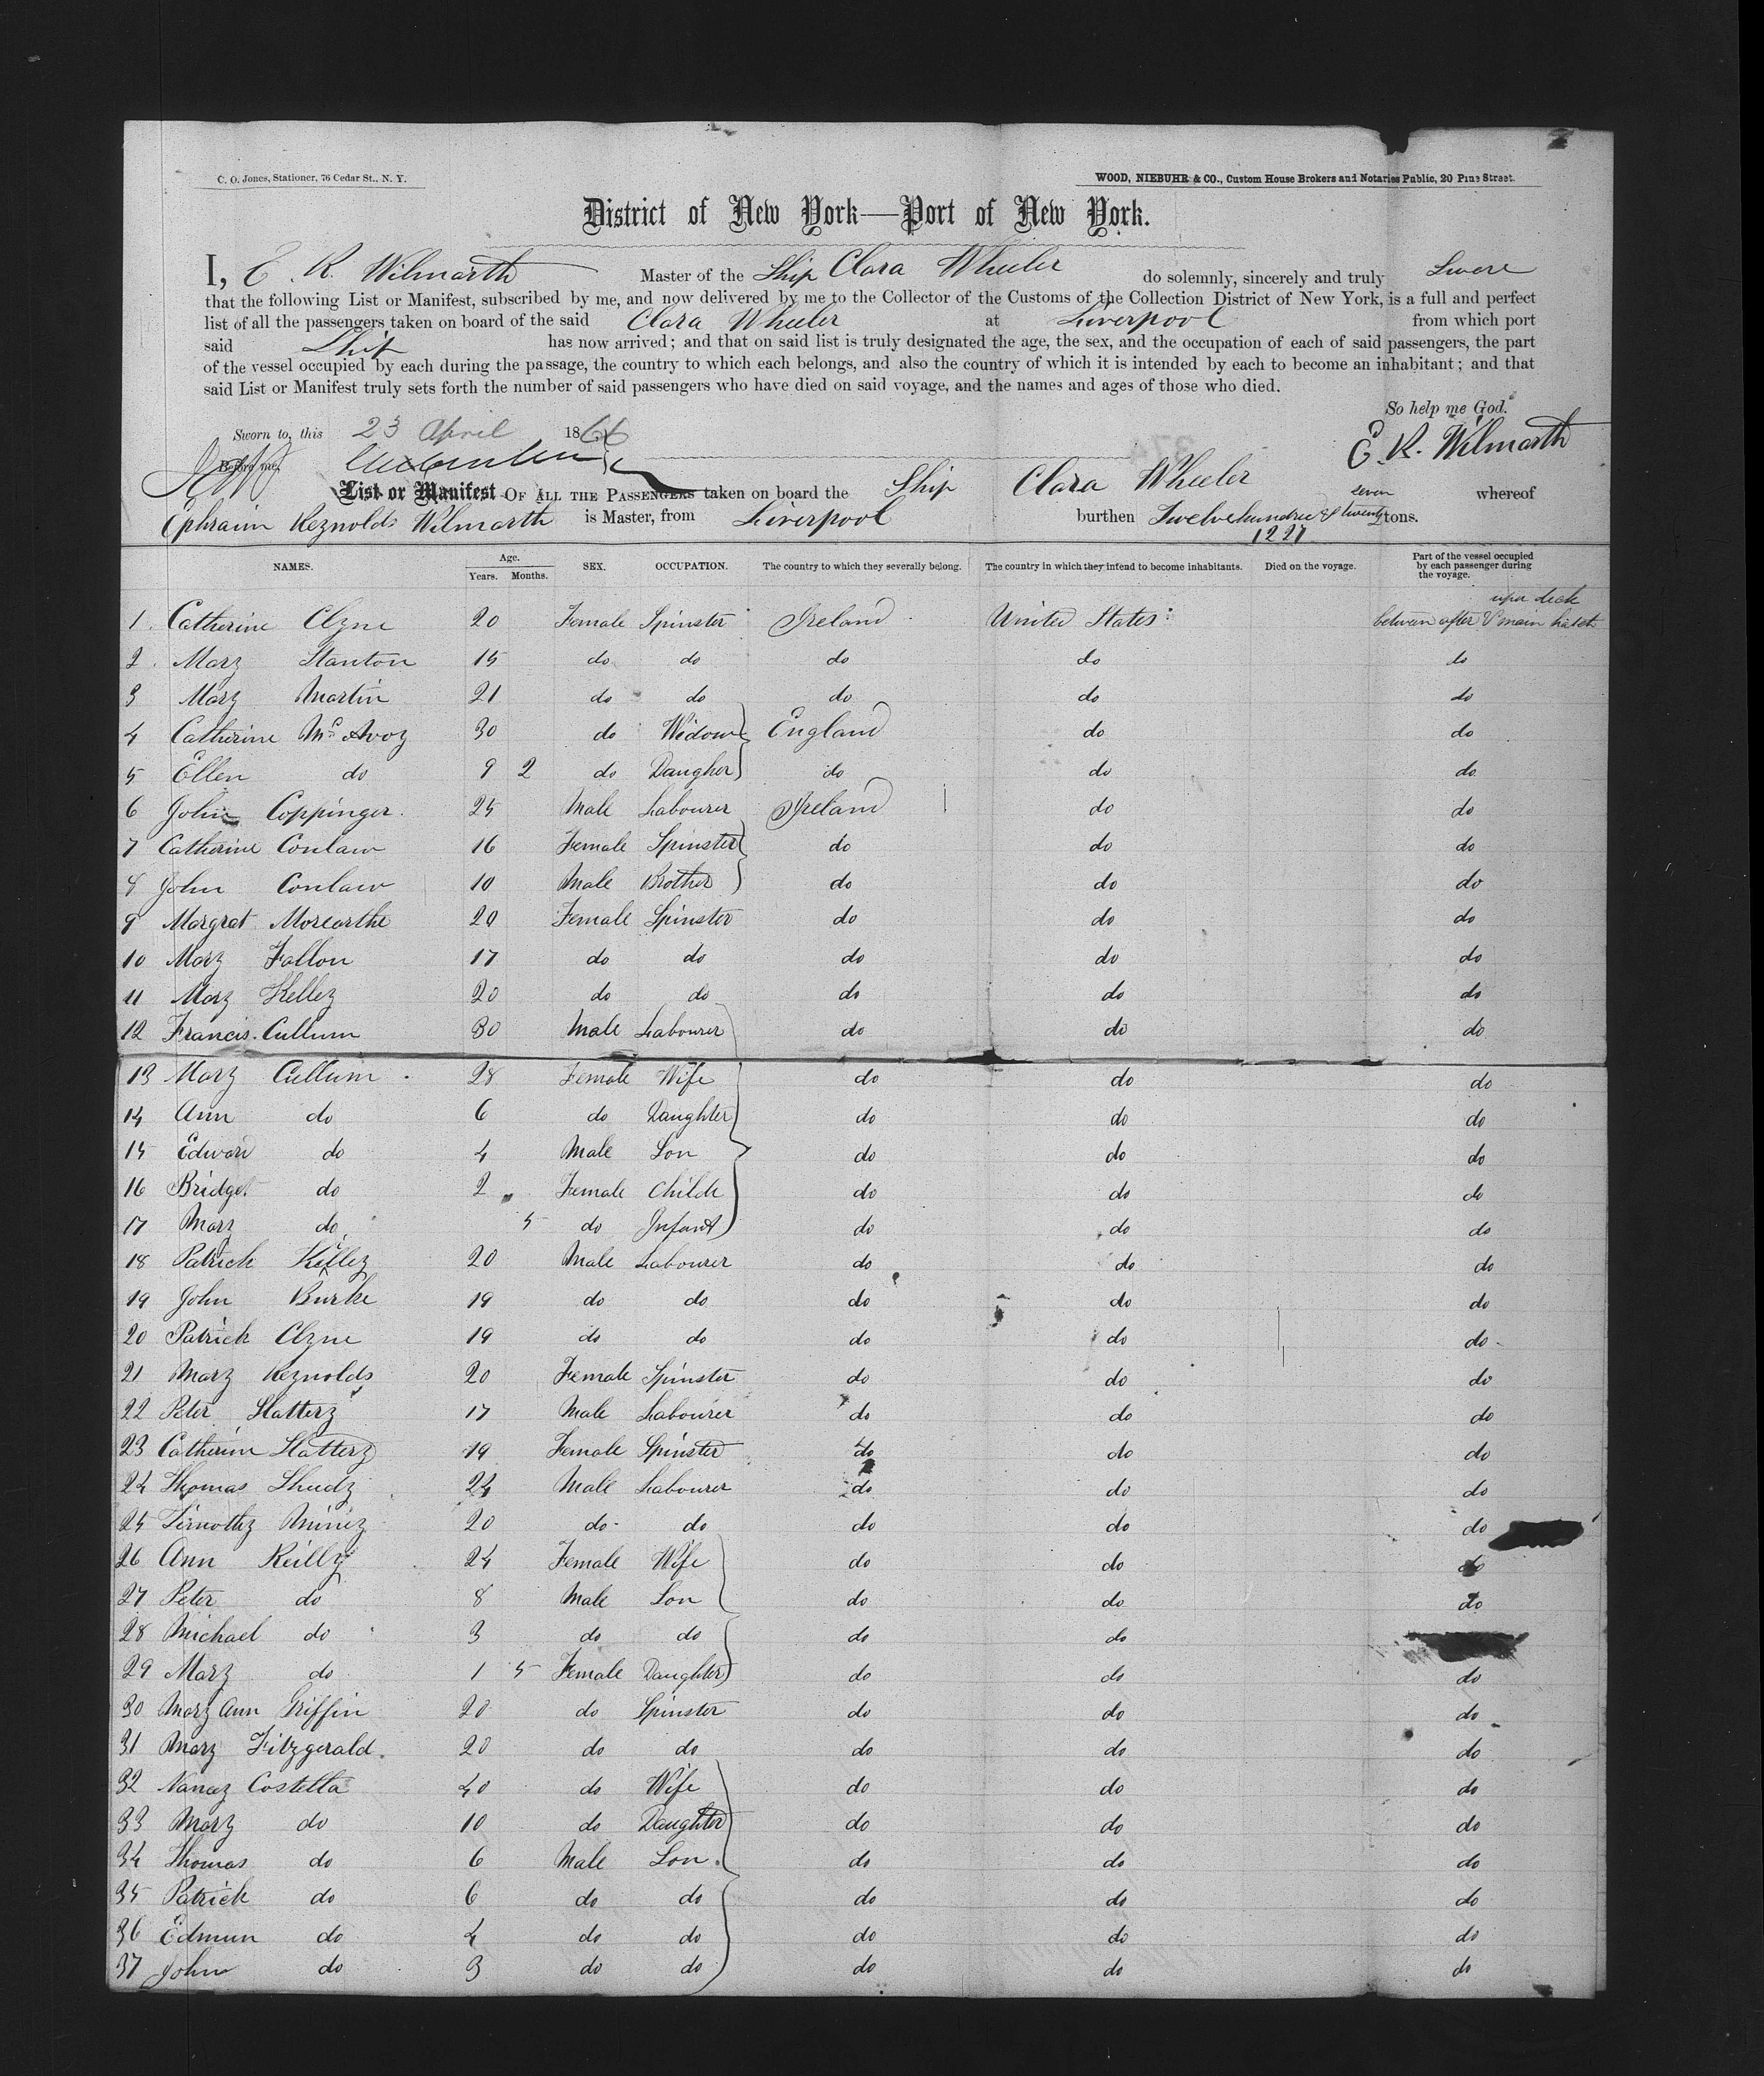 C. O. Jones, Stationer, 76 Cedar St., N. Y.
WOOD, NIEBUHR & CO., Custom House Brokers and Notaries Public, 20 Pine Street.
District of New York—Port of New York.
I, E. R. Wilmarth Master of the Ship Clara Wheeler do solemnly, sincerely and truly Swere
that the following List or Manifest, subscribed by me, and now delivered by me to the Collector of the Customs of the Collection District of New York, is a full and perfect
list of all the passengers taken on board of the said Clara Wheeler at Liverpool from which port
said Ship has now arrived; and that on said list is truly designated the age, the sex, and the occupation of each of said passengers, the part
of the vessel occupied by each during the passage, the country to which each belongs, and also the country of which it is intended by each to become an inhabitant; and that
said List or Manifest truly sets forth the number of said passengers who have died on said voyage, and the names and ages of those who died.
So help me God.
Sworn to, this 23 April 1866
E. R. Wilmarth
Before me,
List or Manifest OF ALL THE PASSENGERS taken on board the Ship Clara Wheeler whereof
Ephraim Reynolds Wilmarth is Master, from Liverpool burthen Twelvehundred & twenty seven tons.
1227
NAMES. Age. Years. Months. SEX. OCCUPATION. The country to which they severally belong. The country in which they intend to become inhabitants. Died on the voyage. Part of the vessel occupied by each passenger during the voyage.
uper deck
1 Catherine Clyne 20 Female Spinster Ireland United States between after & main hatch
2 Mary Stanton 15 do do do do do
3 Mary Martin 21 do do do do do
4 Catherine McAvoy 30 do Widow England do do
5 Ellen do 9 2 do Daugher do do do
6 John Coppinger 25 Male Labourer Ireland do do
7 Catherine Conlaw 16 Female Spinster do do do
8 John Conlaw 10 Male Brother do do do
9 Margret Morearthe 20 Female Spinster do do do
10 Mary Fallon 17 do do do do do
11 Mary Kelley 20 do do do do do
12 Francis Cullum 30 Male Labourer do do do
13 Mary Cullum 28 Female Wife do do do
14 Ann do 6 do Daughter do do do
15 Edward do 4 Male Son do do do
16 Bridget do 2 Female Childe do do do
17 Mary do 5 do Infant do do do
18 Patrick Killey 20 Male Labourer do do do
19 John Burke 19 do do do do do
20 Patrick Clyne 19 do do do do do
21 Mary Reynolds 20 Female Spinster do do do
22 Peter Slattery 17 Male Labourer do do do
23 Catherin Slattery 19 Female Spinster do do do
24 Thomas 24 Male Labourer do do do
25 Timothy 20 do do do do do
26 Ann Reilly 24 Female Wife do do do
27 Peter do 8 Male Son do do do
28 Michael do 3 do do do do
29 Mary do 1 5 Female Daughter do do do
30 Mary Ann Griffin 20 do Spinster do do do
31 Mary Fitzgerald 20 do do do do do
32 Nancy Costella 40 do Wife do do do
33 Mary do 10 do Daughter do do do
34 Thomas do 6 Male Son do do do
35 Patrick do 6 do do do do do
36 Edmun do 4 do do do do do
37 John do 3 do do do do do